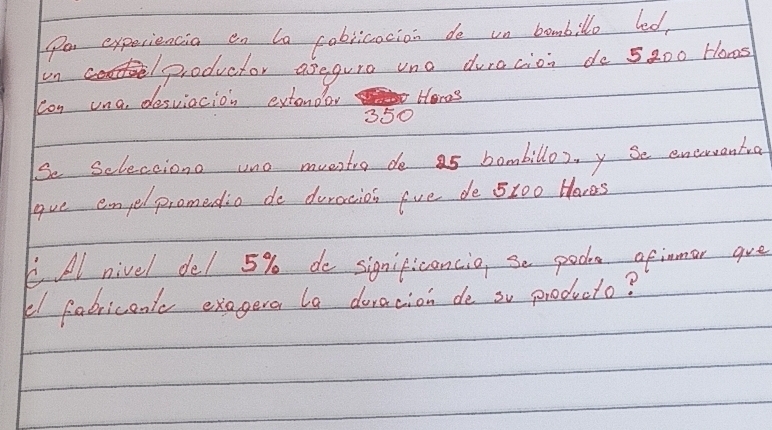 Por experiencia en la fabricación de un bombillo led,
un productor asegura una duración de 5200 Horas
con una desviación extandar Horas
350
Se Selecciona una muestra de 25 bombillos. y Se encuentra
que en el promedio de duración fue de 5100 Horas
¿ Al nivel del 5% de significancia, se podra afirmar que
el fabricante exagera la duración de su producto?